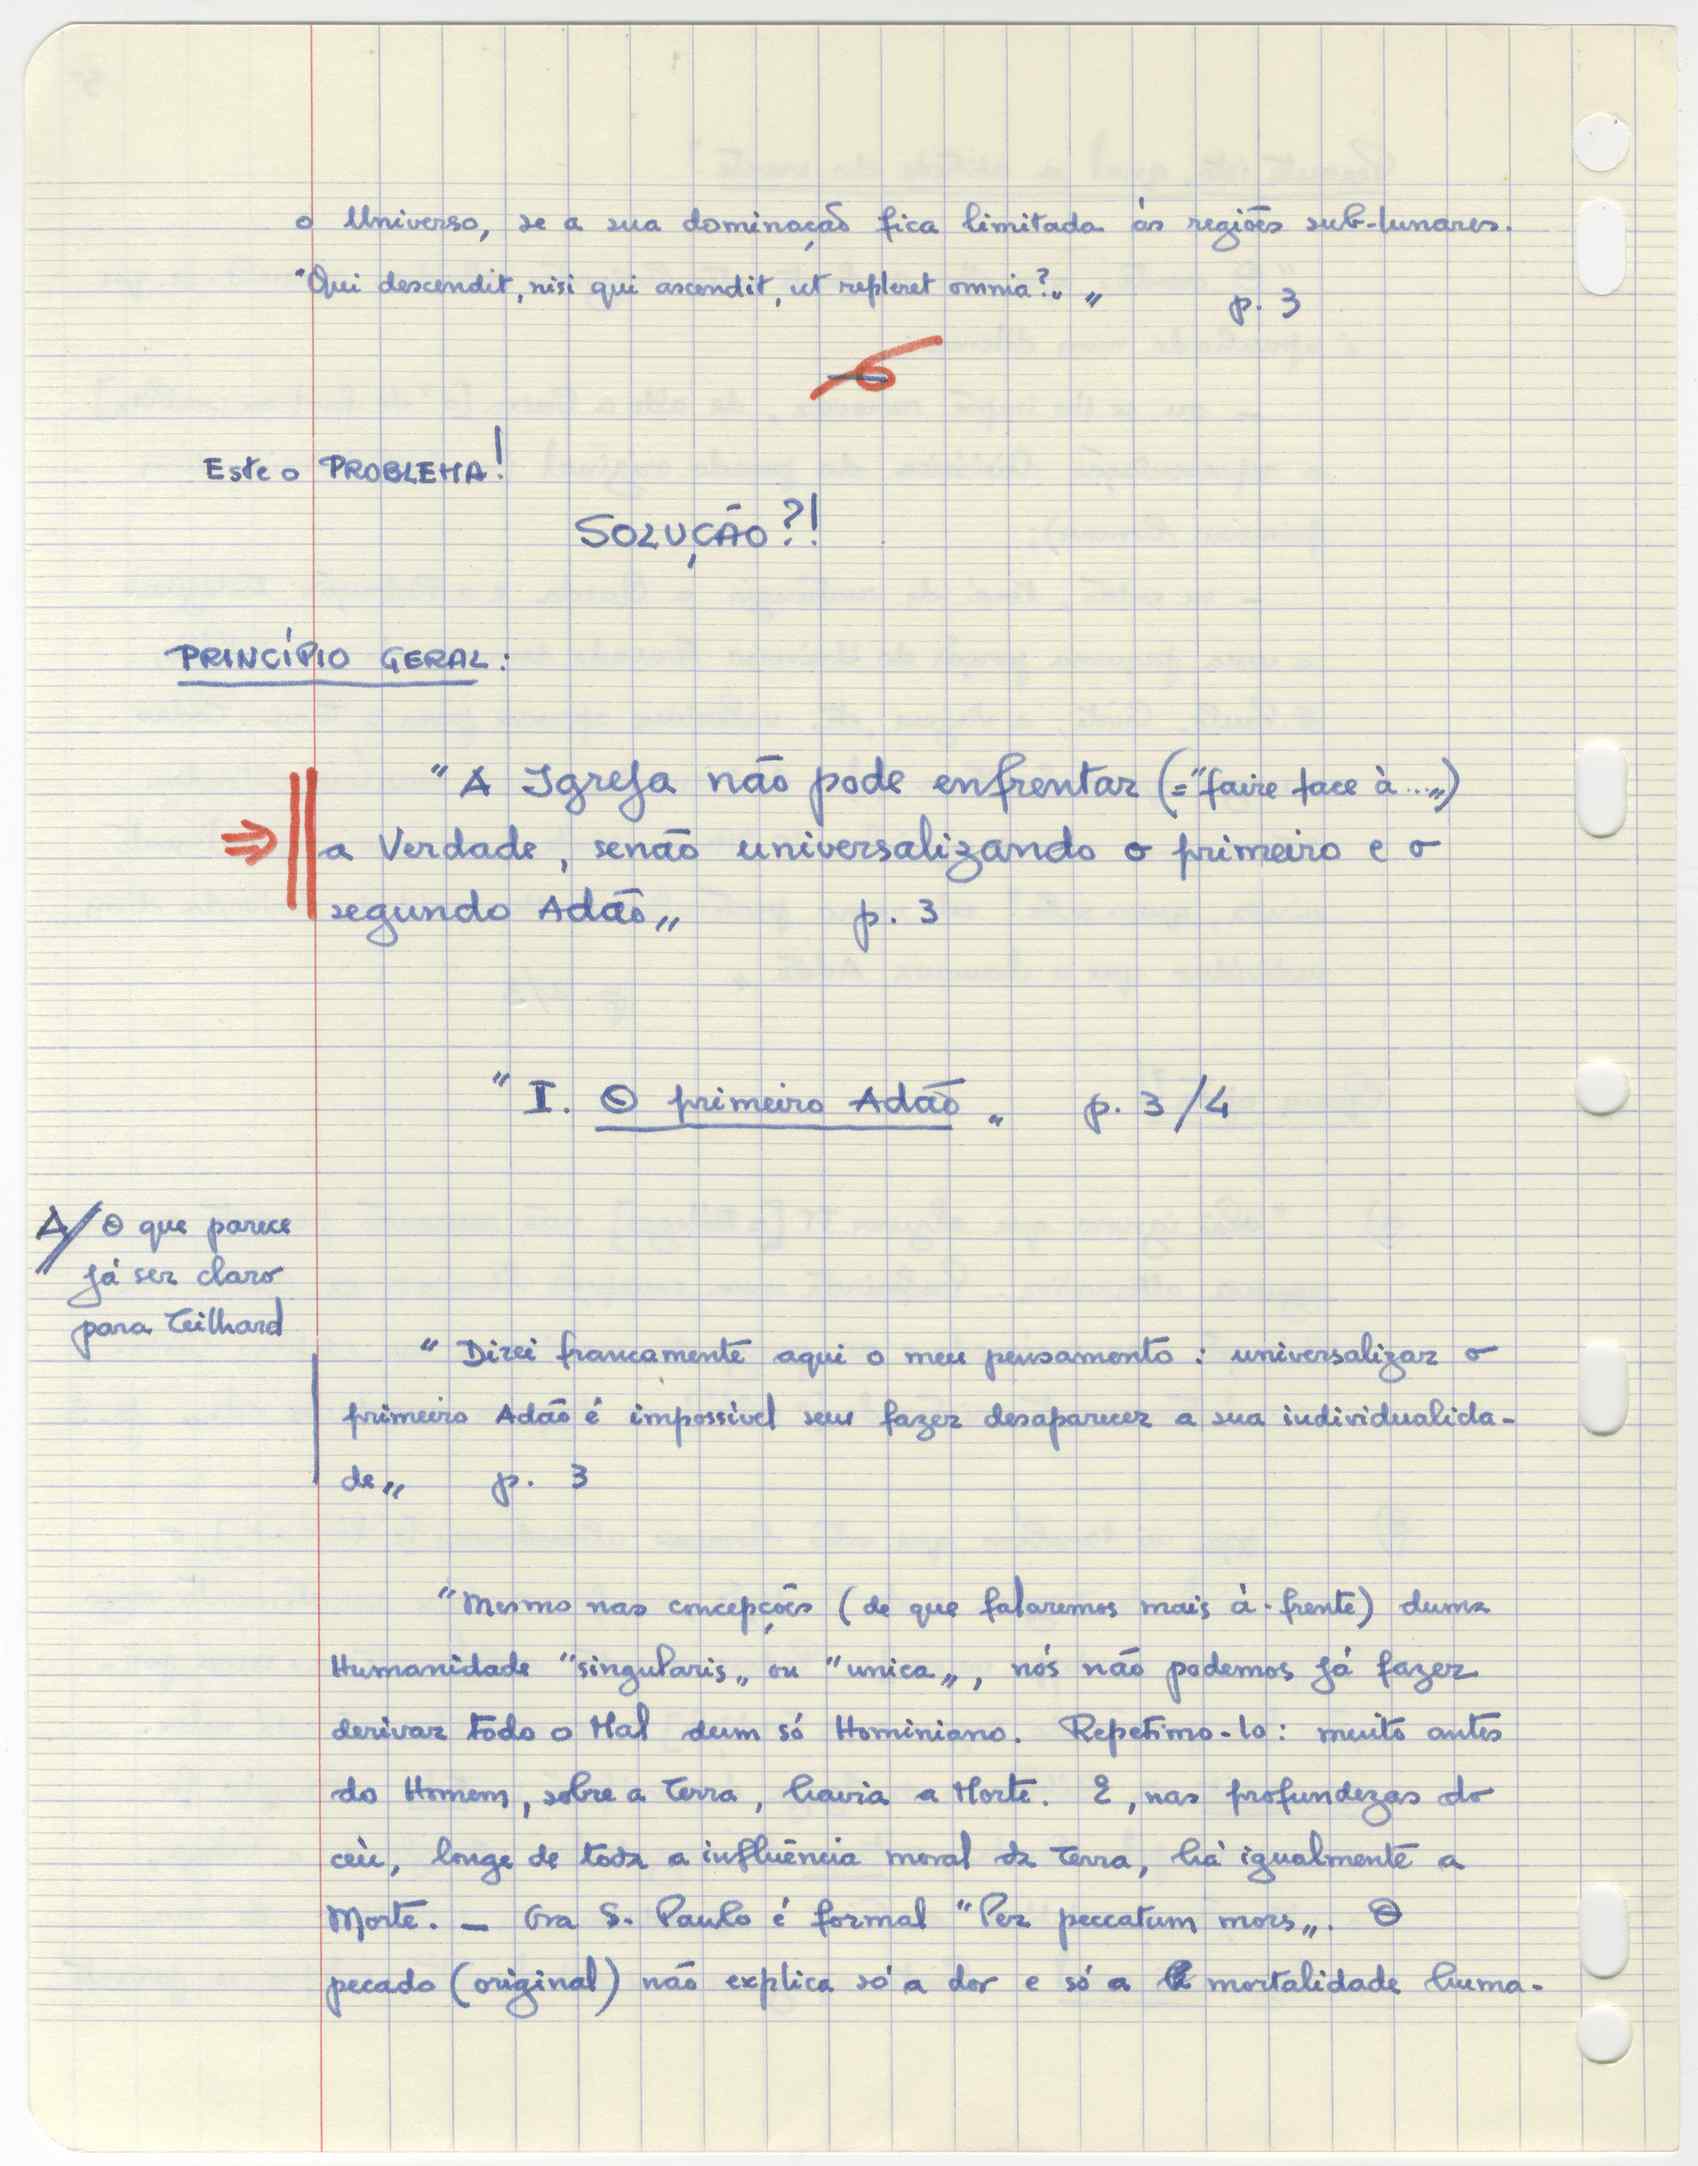 o Universo, se a sua dominação fica limitada às regiões sub-lunares.
"Qui descendit, nisi qui ascendit, ut repleret omnia?„ „ p. 3
Este o PROBLEMA!
SOLUÇÃO?!
PRINCÍPIO GERAL:
"A Igreja não pode enfrentar (="faire face à...„)
⇒ a Verdade, senão universalizando o primeiro e o
segundo Adão„ p. 3
"I. O primeiro Adão„ p. 3/4
A/ O que parece
já ser claro
para Teilhard
"Direi francamente aqui o meu pensamento: universalizar o
primeiro Adão é impossível sem fazer desaparecer a sua individualida-
de„ p. 3
"Mesmo nas concepções (de que falaremos mais à-frente) duma
Humanidade "singularis„ ou "unica„, nós não podemos já fazer
derivar todo o Mal dum só Hominiano. Repetimo-lo: muito antes
do Homem, sobre a Terra, havia a Morte. E, nas profundezas do
céu, longe de toda a influência moral da Terra, há igualmente a
Morte. — Ora S. Paulo é formal "Per peccatum mors„. O
pecado (original) não explica só a dor e só a mortalidade huma-